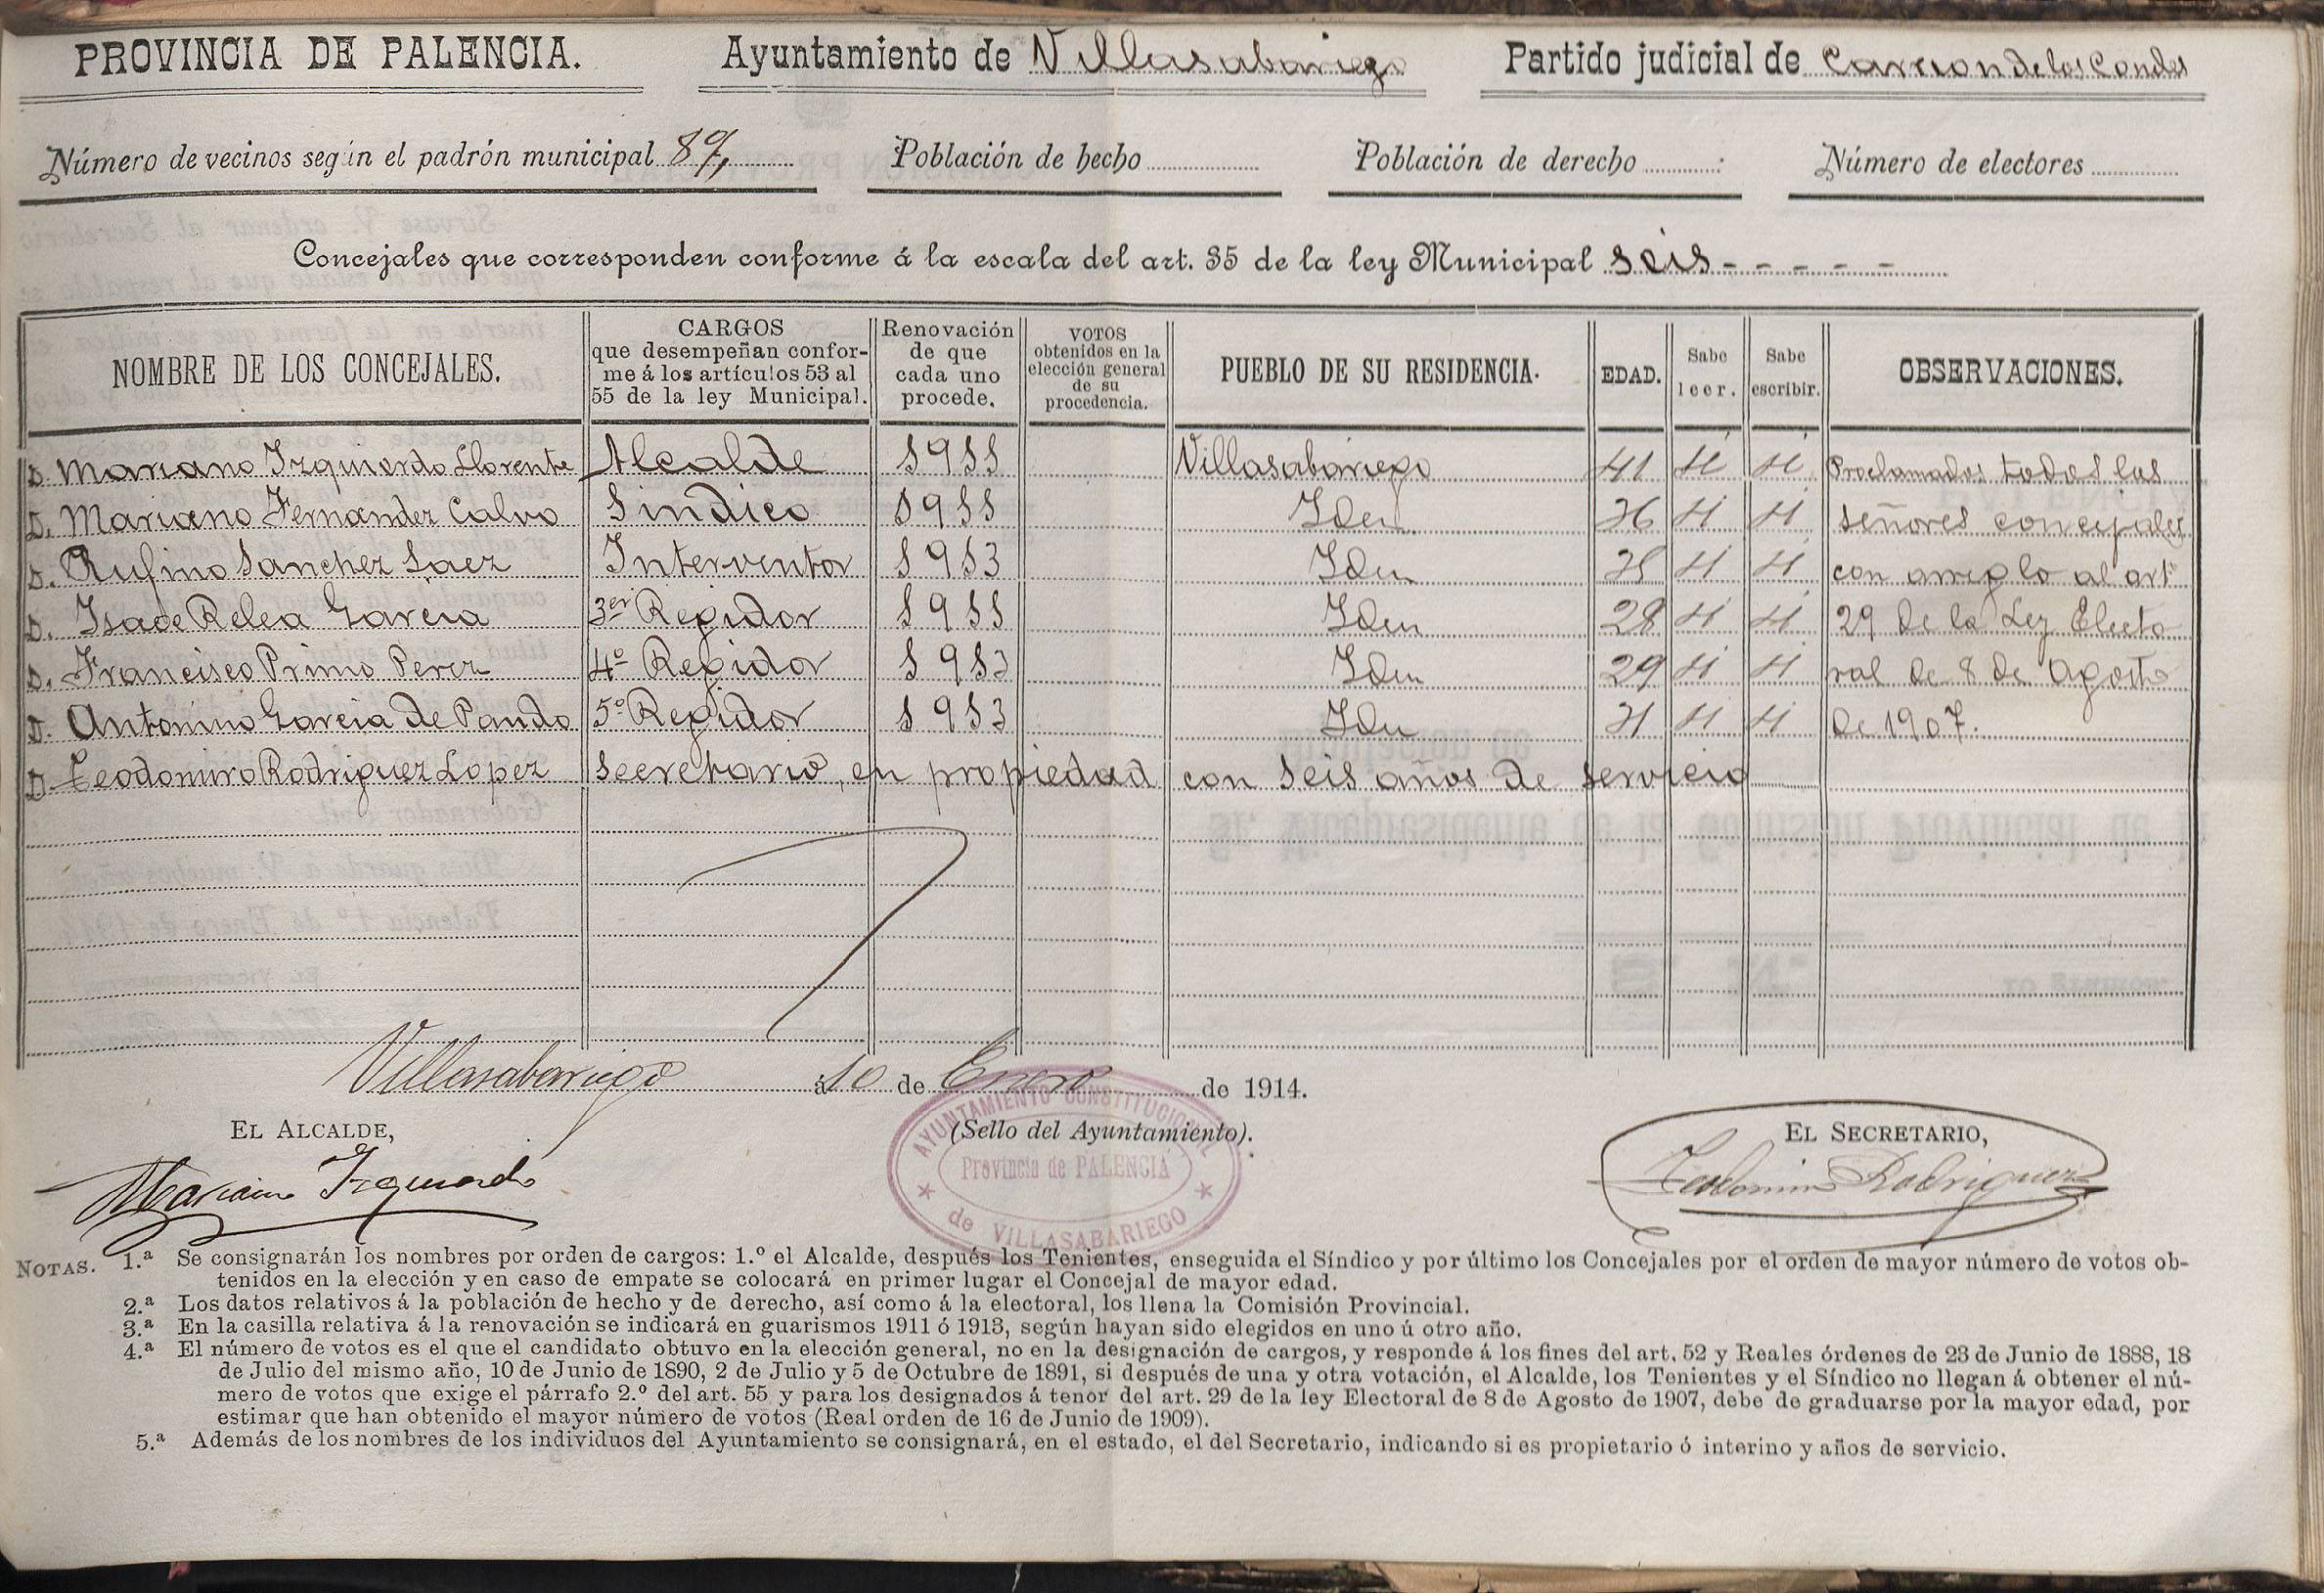 PROVINCIA DE PALENCIA. Ayuntamiento de Villasabariego Partido judicial de Carrion de los Condes
Número de vecinos según el padrón municipal 87, Población de hecho Población de derecho Número de electores
Concejales que corresponden conforme á la escala del art. 35 de la ley Municipal seis - - - - -
NOMBRE DE LOS CONCEJALES.
CARGOS
que desempeñan confor-
me á los artículos 53 al
55 de la ley Municipal.
Renovación
de que
cada uno
procede.
VOTOS
obtenidos en la
elección general
de su
procedencia.
PUEBLO DE SU RESIDENCIA.
EDAD.
Sabe
leer.
Sabe
escribir.
OBSERVACIONES.
D. Mariano Izquierdo Llorente Alcalde 1911 Villasabariego 41 si si Proclamados todos los
D. Mariano Fernandez Calvo Sindico 1911 Idem 36 si si señores concejales
D. Rufino Sanchez Saez Interventor 1913 Idem si si con arreglo al artº
D. Isace Relea Garcia 3er Regidor 1911 Idem 28 si si 29 de la Ley Electo
D. Francisco Primo Perez 4º Regidor 1913 Idem 29 si si ral de 8 de Agosto
D. Antonino Garcia de Pando 5º Regidor 1913 Idem 31 si si de 1907.
D. Teodomiro Rodriguez Lopez Secretario, en propiedad con seis años de servicio
Villasabariego á 10 de Enero de 1914.
EL ALCALDE, (Sello del Ayuntamiento). EL SECRETARIO,
Mariano Izquierdo
AYUNTAMIENTO CONSTITUCIONAL
Provincia de PALENCIA
de VILLASABARIEGO
Teodomiro Rodriguez
NOTAS. 1.ª Se consignarán los nombres por orden de cargos: 1.º el Alcalde, después los Tenientes, enseguida el Síndico y por último los Concejales por el orden de mayor número de votos ob-
tenidos en la elección y en caso de empate se colocará en primer lugar el Concejal de mayor edad.
2.ª Los datos relativos á la población de hecho y de derecho, así como á la electoral, los llena la Comisión Provincial.
3.ª En la casilla relativa á la renovación se indicará en guarismos 1911 ó 1913, según hayan sido elegidos en uno ú otro año.
4.ª El número de votos es el que el candidato obtuvo en la elección general, no en la designación de cargos, y responde á los fines del art. 52 y Reales órdenes de 23 de Junio de 1888, 18
de Julio del mismo año, 10 de Junio de 1890, 2 de Julio y 5 de Octubre de 1891, si después de una y otra votación, el Alcalde, los Tenientes y el Síndico no llegan á obtener el nú-
mero de votos que exige el párrafo 2.º del art. 55 y para los designados á tenor del art. 29 de la ley Electoral de 8 de Agosto de 1907, debe de graduarse por la mayor edad, por
estimar que han obtenido el mayor número de votos (Real orden de 16 de Junio de 1909).
5.ª Además de los nombres de los individuos del Ayuntamiento se consignará, en el estado, el del Secretario, indicando si es propietario ó interino y años de servicio.